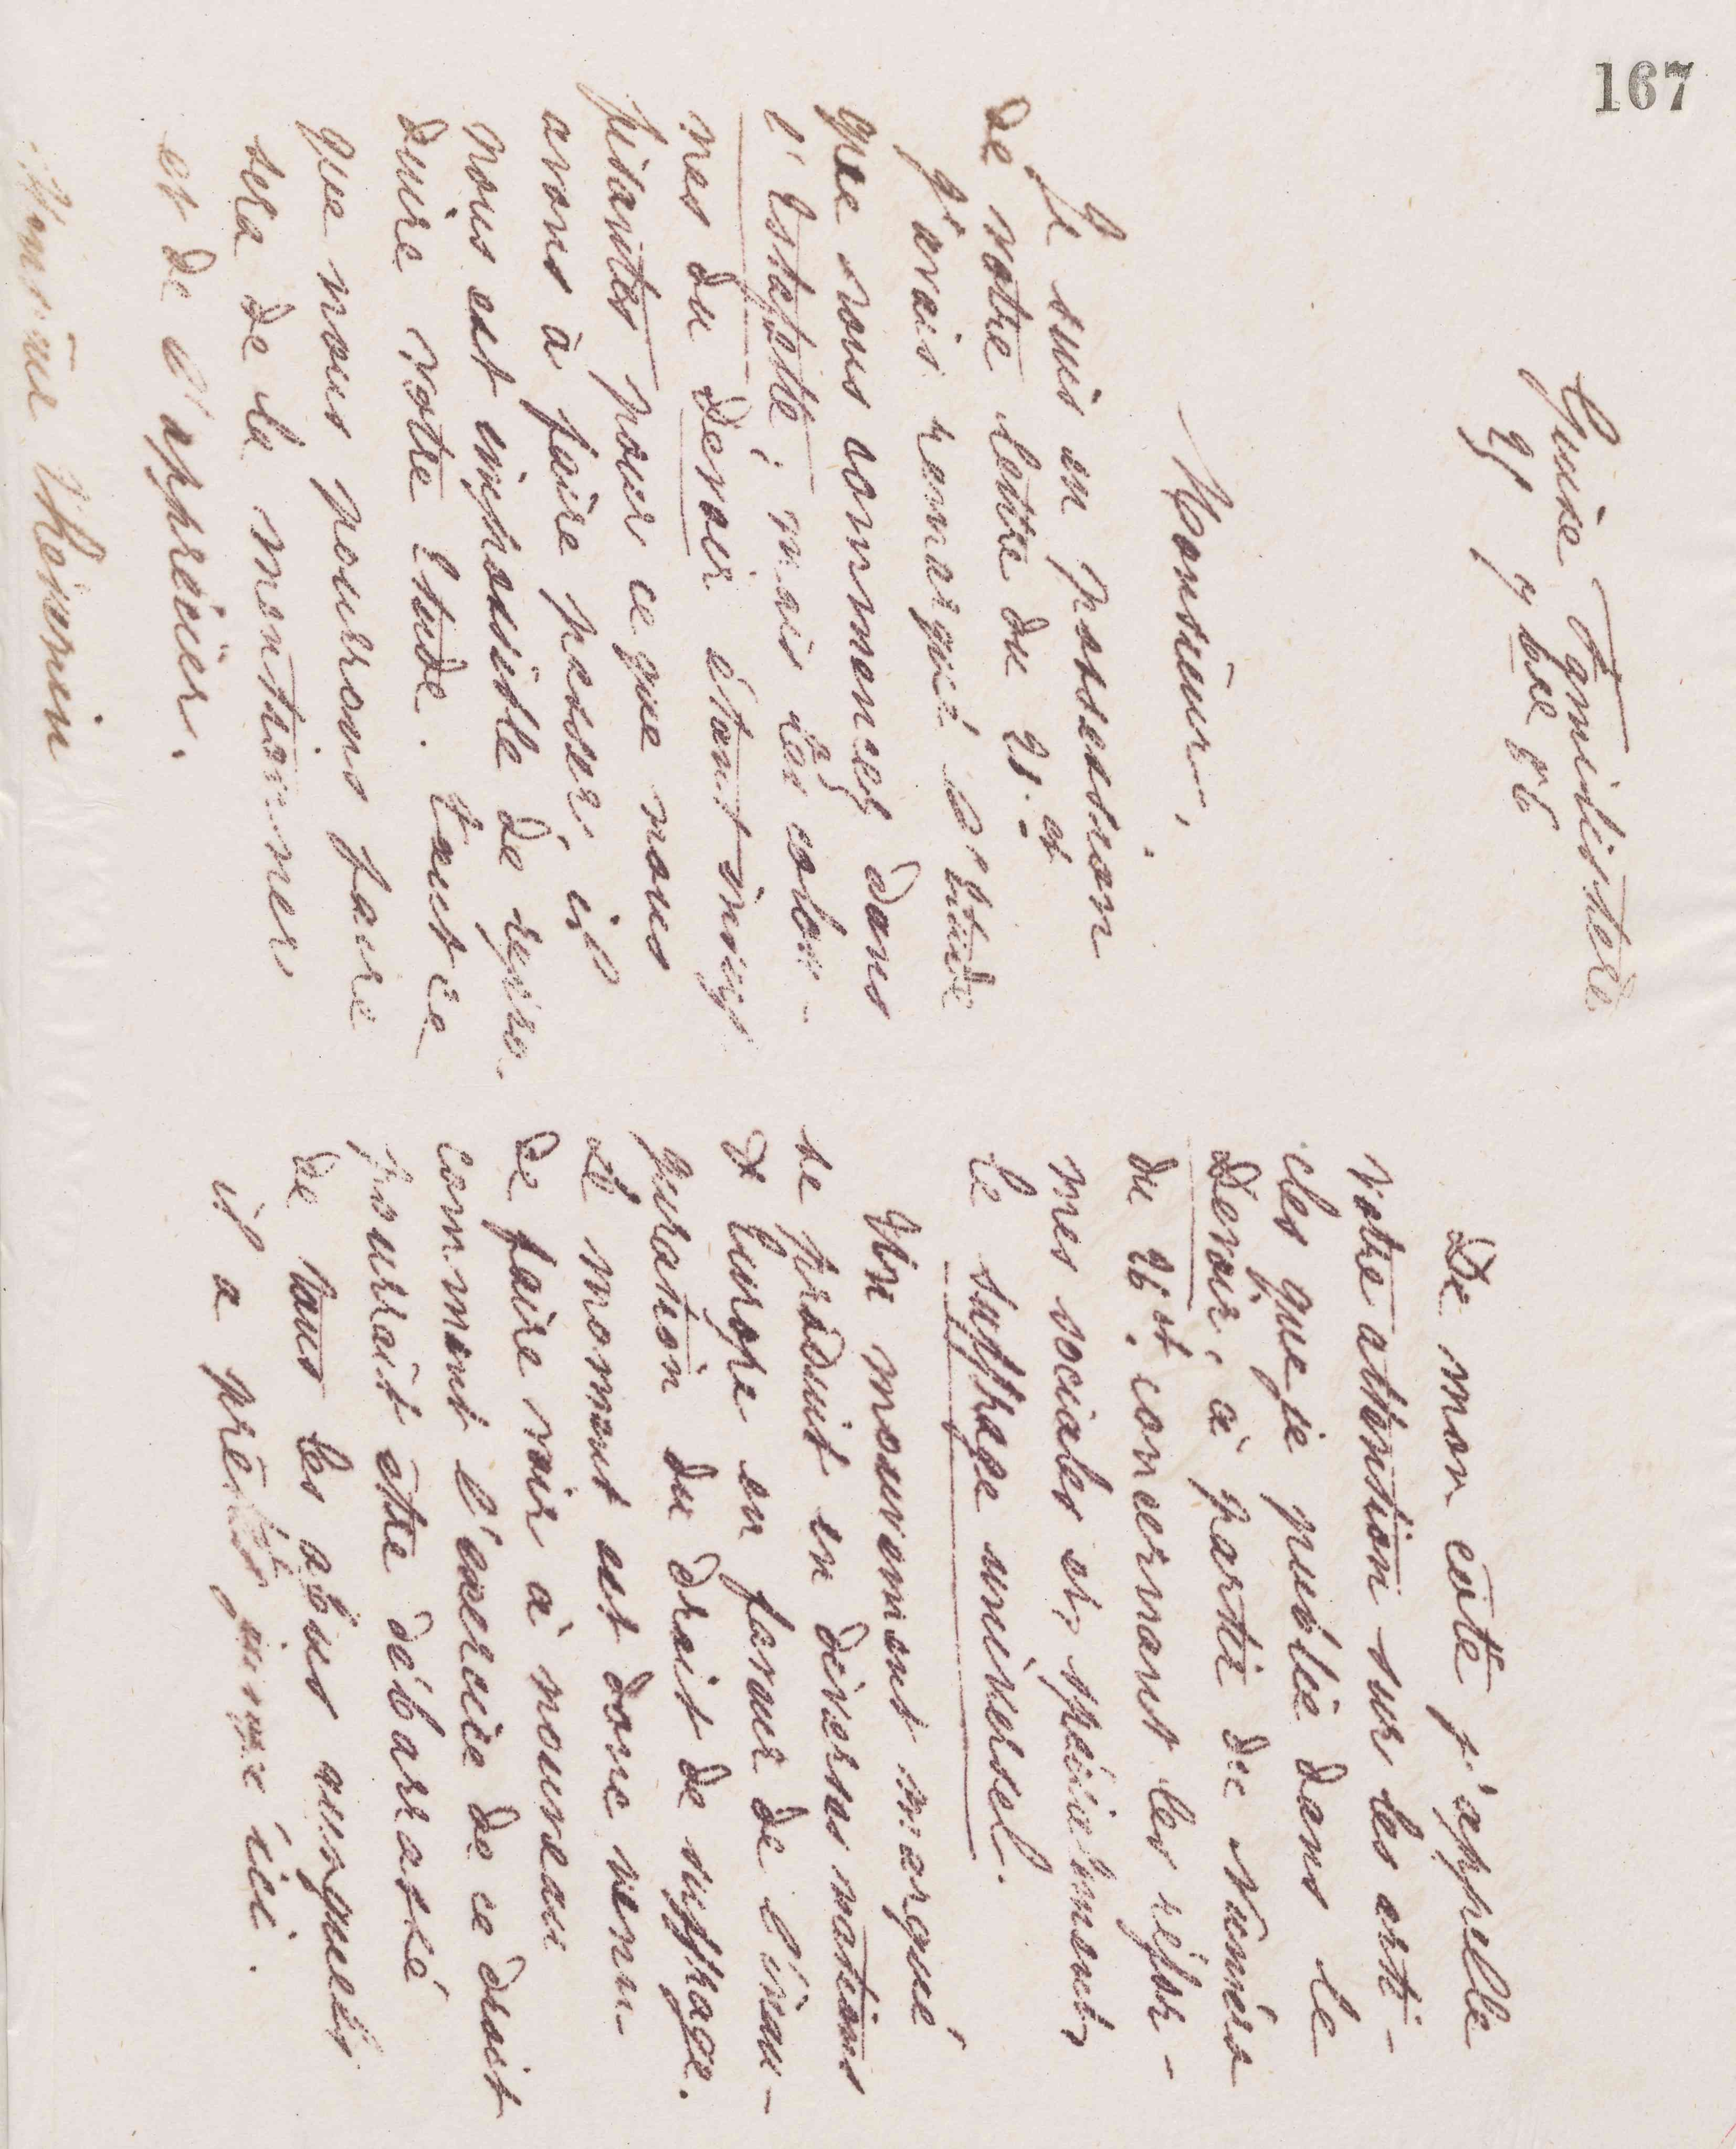 167
Guise Familistère
25 7bre 86
Monsieur,
Je suis en possession
de votre lettre du 21 ct
J'avais remarqué l'Etude
que vous commencez dans
l'Estafette ; mais les colon-
nes du Devoir étant insuf
fisantes pour ce que nous
avons à faire passer, il
nous est impossible de repro.
duire votre Etude. Tout ce
que nous pourrons faire
sera de la mentionner
et de l'apprécier.
Monsieur Thémin
De mon côté j'appelle
votre attention sur les arti-
cles que je publie dans le
Devoir, à partir du Numéro
du 26 ct. concernant les réfor-
mes sociales et, spécialement,
le suffrage universel.
Un mouvement marqué
se produit en diverses nations
d'Europe en faveur de l'inau-
guration du droit de suffrage.
Le moment est donc venu
de faire voir à nouveau
comment l'exercice de ce droit
pourrait être débarrassé
de tous les abus auxquels
il a prêté jusqu'ici.